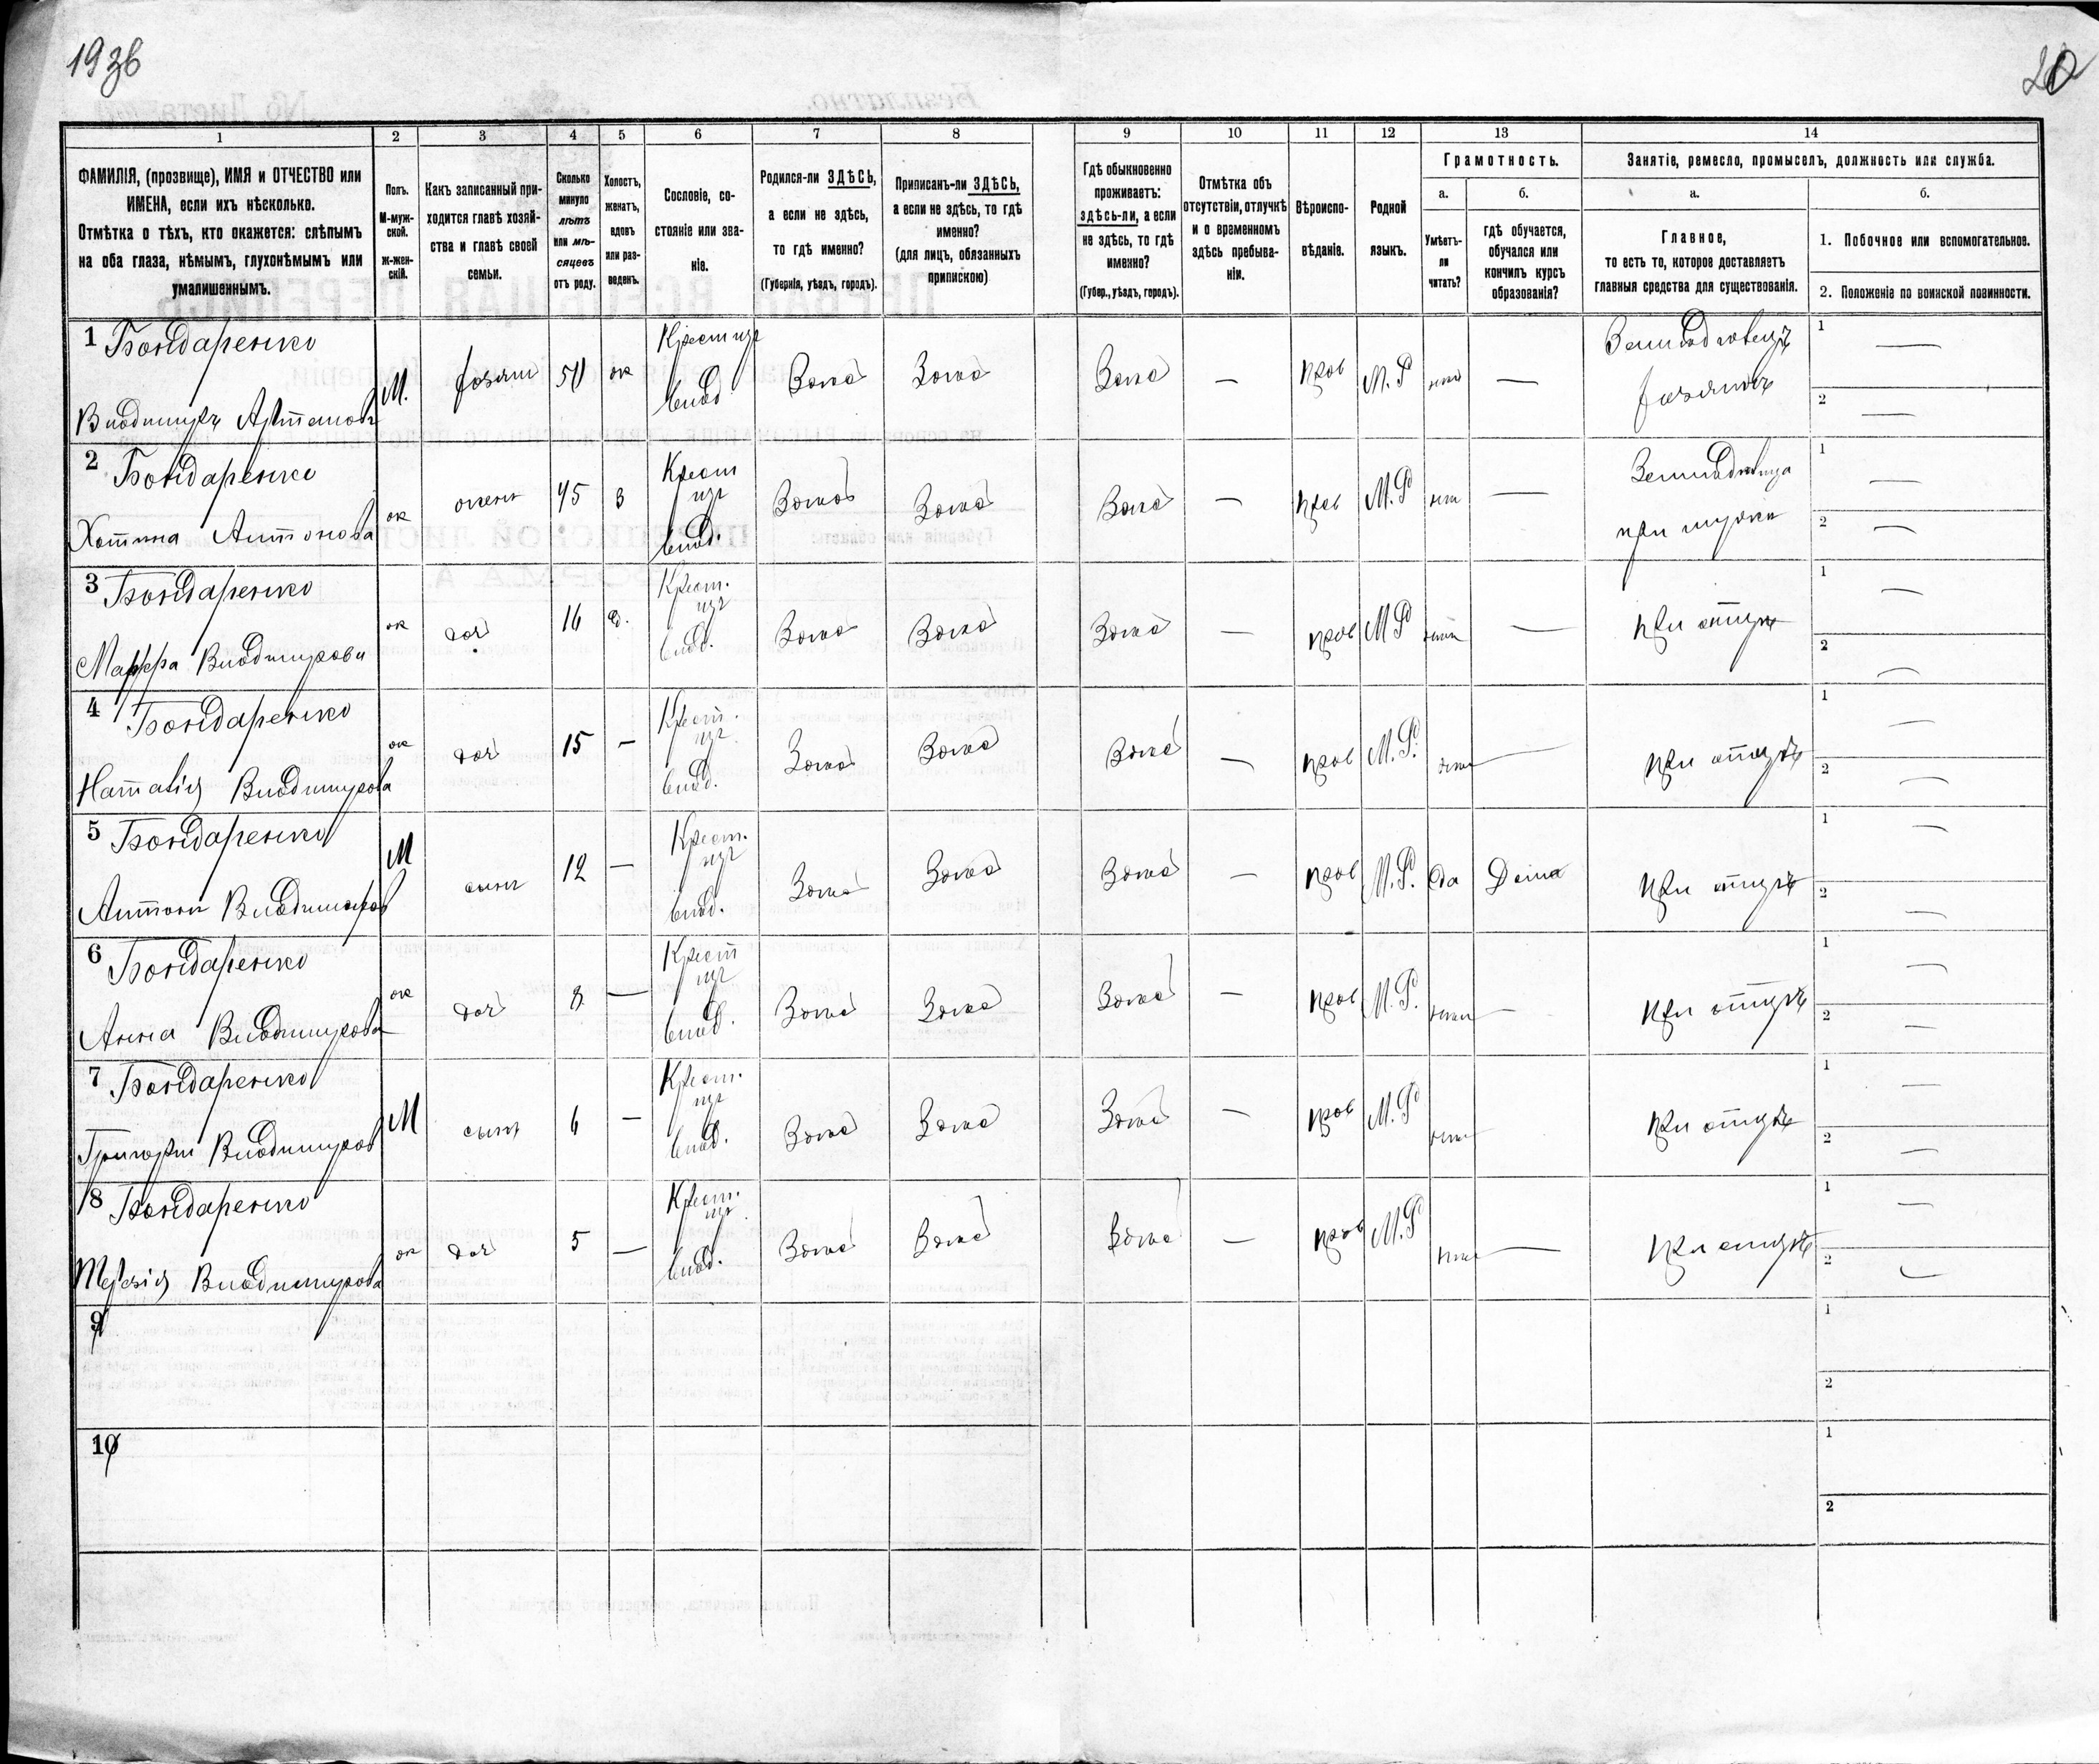 193б
20
1 2 3 4 5 6 7 8 9 10 11 12 13 14
ФАМИЛІЯ, (прозвище), ИМЯ и ОТЧЕСТВО или
ИМЕНА, если ихъ нѣсколько.
Отмѣтка о тѣхъ, кто окажется: слѣпымъ
на оба глаза, нѣмымъ, глухонѣмымъ или
умалишеннымъ.
Полъ.
М-муж-
ской.
ж-жен-
скій.
Какъ записанный при-
ходится главѣ хозяй-
ства и главѣ своей
семьи.
Сколько
минуло
лѣтъ
или мѣ-
сяцевъ
отъ роду.
Холостъ,
женатъ,
вдовъ
или раз-
веденъ.
Сословіе, со-
стояніе или зва-
ніе.
Родился-ли ЗДѢСЬ,
а если не здѣсь,
то гдѣ именно?
(Губернія, уѣздъ, городъ).
Приписанъ-ли ЗДѢСЬ,
а если не здѣсь, то гдѣ
именно?
(для лицъ, обязанныхъ
припискою)
Гдѣ обыкновенно
проживаетъ:
здѣсь-ли, а если
не здѣсь, то гдѣ
именно?
(Губер., уѣздъ, городъ).
Отмѣтка объ
отсутствіи, отлучкѣ
и о временномъ
здѣсь пребыва-
ніи.
Вѣроиспо-
вѣданіе.
Родной
языкъ.
Грамотность.
а.
Умѣетъ-
ли
читать?
б.
гдѣ обучается,
обучался или
кончилъ курсъ
образованія?
Занятіе, ремесло, промыселъ, должность или служба.
а.
Главное,
то есть то, которое доставляетъ
главныя средства для существованія.
б.
1. Побочное или вспомогательное.
2. Положеніе по воинской повинности.
1 Бондаренко
Владимиръ Артемовъ М. хозяин ж Крест из влад здесь здесь здесь — прав М. Р нет — Земледелецъ хозяинъ 1 — 2 —
2 Бондаренко
Антонова ж жена 45 з Крест из влад. здесь здесь здесь — прав М. Р нет — 1 — 2 —
3 Бондаренко
Марфа Владимирова ж доч 16 Крест. из влад. здесь здесь здесь — прав М Р — При отцѣ 1 — 2 —
4 Бондаренко
Наталія Владимирова ж доч 15 — Крест. из влад. здесь здесь здесь — прав М. Р. нет — При отцѣ 1 — 2 —
5 Бондаренко
Антон Владимиров М сынъ 12 — Крест. из влад. здесь здесь здесь — прав М. Р. да Дома При отцѣ 1 — 2 —
6 Бондаренко
Анна Владимирова ж доч 8 — Крест из влад. здесь здесь здесь — прав М. Р. нет — При отцѣ 1 — 2 —
7 Бондаренко
Григорий Владимиров М сынъ 6 — Крест. из влад. здесь здесь здесь — прав М. Р нет При отцѣ 1 — 2 —
8 Бондаренко
Владимирова ж доч 5 — Крест. из влад. здесь здесь здесь — прав М. Р нет — При отцѣ 1 — 2 —
9 1
2
10 1
2